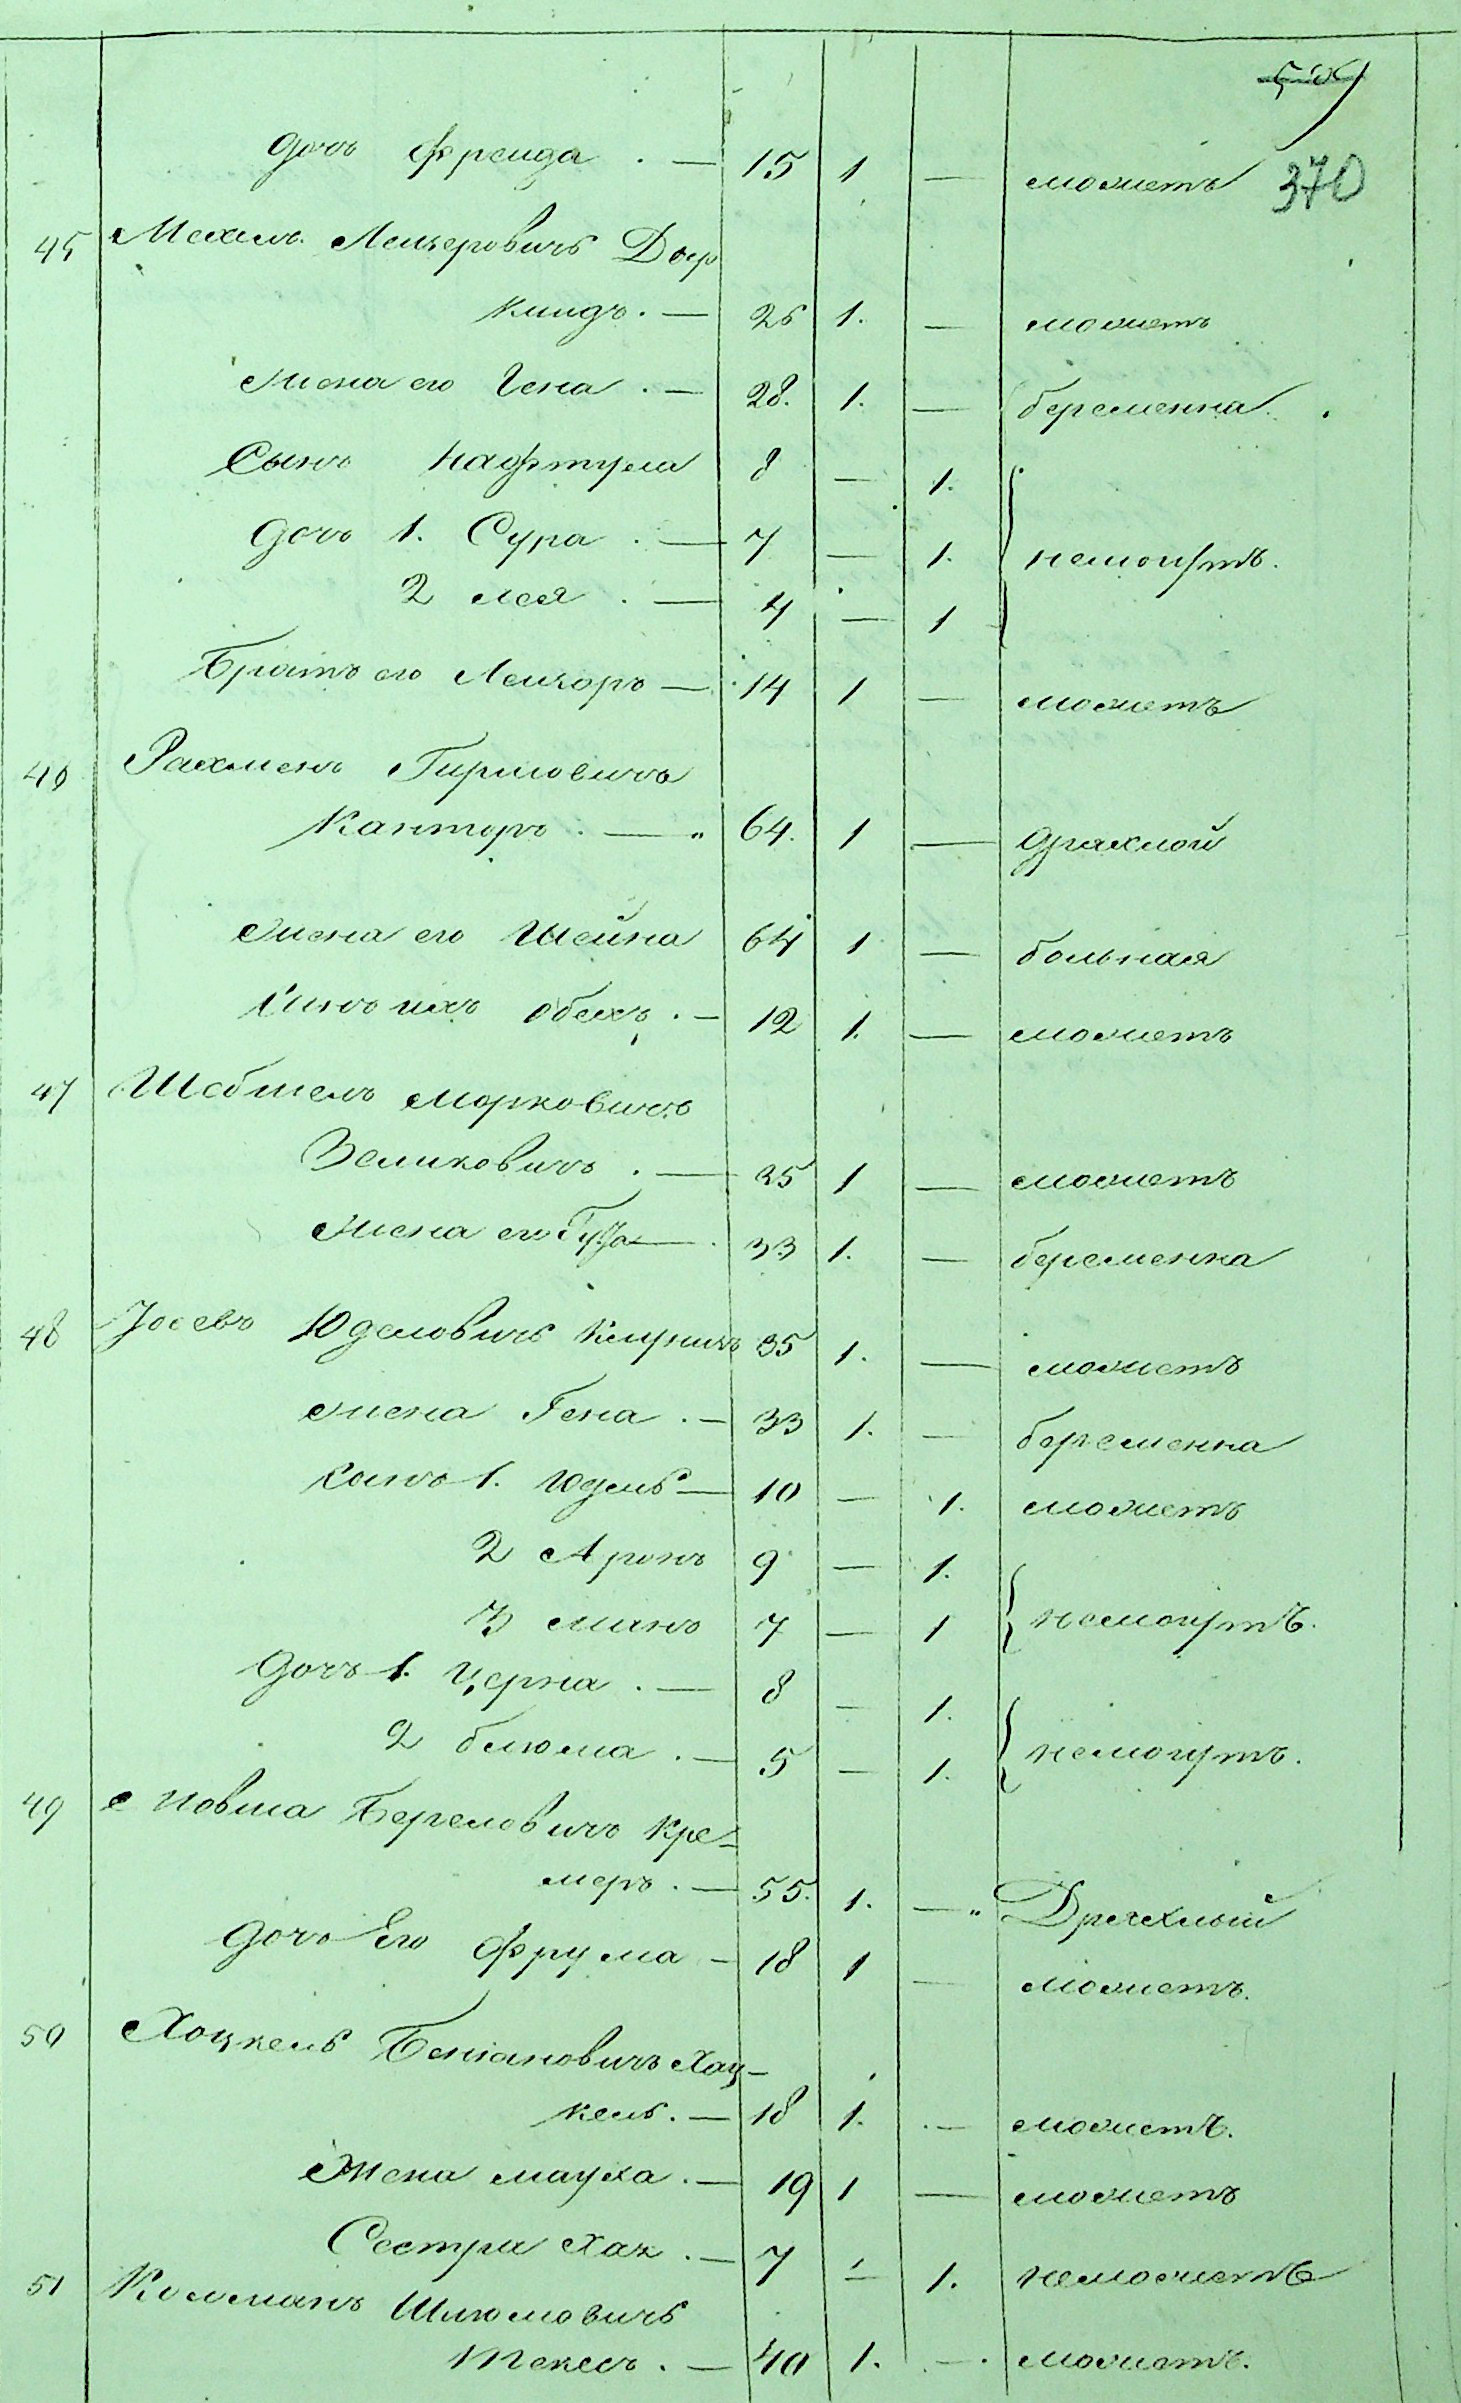 370
дочь Фрейда . — 15 1 — можетъ
45 Мехель Лейзеровичъ Дор
киндъ . — 26 1. — можетъ
жена его Гена . — 28. 1. — беременна.
Сынъ Нафтула 8 — 1.
дочь 1. Сура . — 7 — 1. немогутъ.
2 Лея . — 4 — 1
Братъ его Лейзоръ — 14 1 — можетъ
46 Рахмень Гиршовичъ
Канторъ . — „ 64. 1 — дряхлой
жена его Шейна 64 1 — больная
сынъ ихъ . — 12 1. — можетъ
47 Шебшель Морковичъ
Зеликовичъ . — 35 1 — можетъ
жена его — . 33 1. — беременна
48 Іосевъ Юделовичъ 35 1. — можетъ
жена Гена . — 33 1. — беременна
сынъ 1. Юдель — 10 — 1. можетъ
2 Аронъ 9 — 1.
3 7 — 1 немогутъ.
дочь 1. Черна . — 8 — 1.
2 блюма . — 5 — 1. немогутъ.
49 Мовша Береловичъ Кре-
меръ . — 55. 1. — „ Дряхлый
дочь Его Фрума — 18 1 — можетъ.
50 Хоцкель Беніановичъ Хац-
кель . — 18 1. . — можетъ.
Жена . — 19 1 — можетъ
Сестра Хая . — 7 — 1. неможетъ
51 Колманъ Шлюмовичъ
. — 40 1. . — . можетъ.